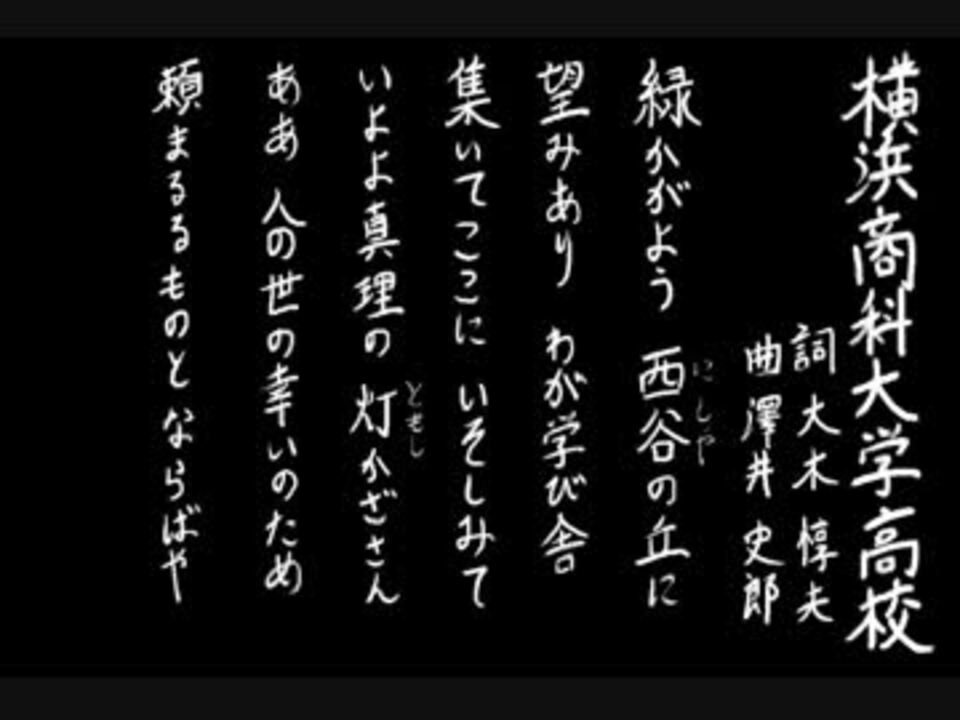 横浜商科大学高校
詞 大木 惇夫
曲 澤井 史郎
緑かがよう 西谷の丘に
にしや
望みあり わが学び舎
集いてここに いそしみて
いよよ真理の 灯かざさん
ともし
ああ 人の世の幸いのため
頼まるるものと ならばや